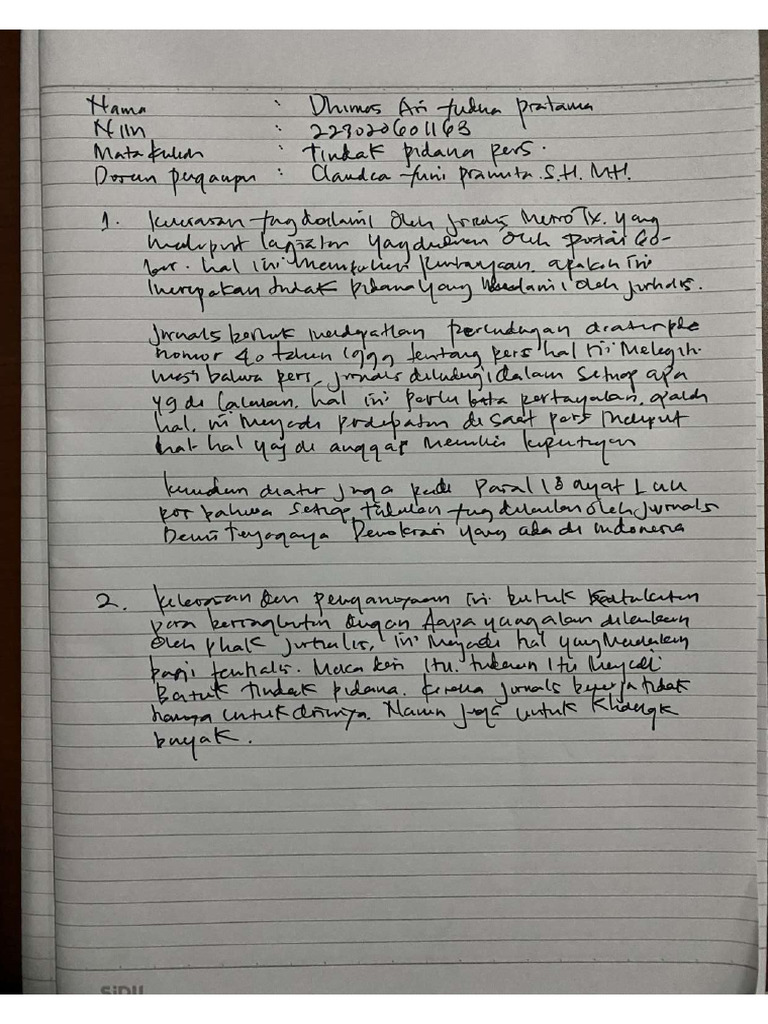 Nama : Dhimas Ari Yudha Pratama
NIM : 223020601163
Mata kuliah : Tindak pidana pers.
Dosen pengampu : Claudea Yuni Pramita. S.H. M.H.
1. kekerasan yang dialami oleh jurnalis Metro Tv. yang
meliput kegiatan yang oleh
hal ini pertanyaan. apakah ini
merupakan tindak pidana yang dialami oleh jurnalis.
Jurnalis berhak mendapatkan perlindungan diatur
nomor 40 tahun 1999 tentang pers hal ini
masi bahwa pers, jurnalis dilindungi dalam setiap apa
yg di lakukan. hal ini perlu kita pertanyakan. apakah
hal. ini menjadi perdebatan di saat pers meliput
hal-hal yang di anggap memiliki kepentingan
kemudian diatur juga pada Pasal 18 ayat 1 UU
pers bahwa setiap tindakan yang dilakukan oleh jurnalis
Demi terjaganya Demokrasi yang ada di indonesia
2. kekerasan dan penganiayaan ini bentuk ketakutan
para dengan apa yang akan dilakukan
oleh pihak jurnalis, ini menjadi hal yang
bagi jurnalis. Maka dari itu. tindakan itu menjadi
Bentuk tindak pidana. karena jurnalis bekerja tidak
hanya untuk dirinya. Namun juga untuk khalayak
banyak.
SIDU